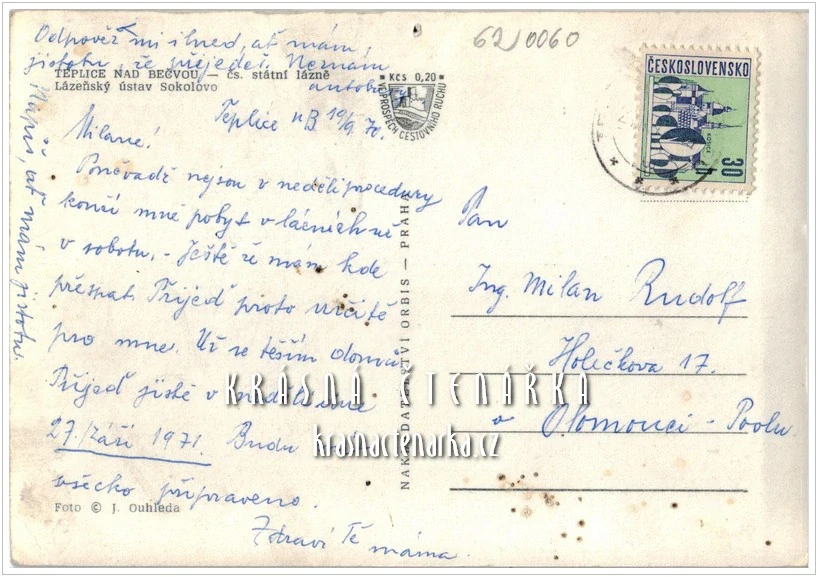 Odpověz mi ihned, ať mám
jistotu, že přijedeš. Nemám
TEPLICE NAD BEČVOU — čs. státní lázně
Lázeňský ústav Sokolovo
Teplice n/B 19/9. 70.
Milane!
Poněvadž nejsou v neděli procedury
končí mně pobyt v lázních už
v sobotu. - Ještě že mám kde
přespat. Přijeď proto určitě
pro mne. Už se těším domů.
Přijeď jistě v neděli
27./září 1971. Budu
všecko připraveno.
Zdraví Tě
máma.
Napiš, ať mám jistotu.
Foto © J. Ouhleda
KČS 0,20
VE PROSPĚCH CESTOVNÍHO RUCHU
NAKLADATELSTVÍ ORBIS — PRAHA
62/0060
ČESKOSLOVENSKO
30
Pan
Ing. Milan Rudolf
Holečkova 17.
v Olomouci -
KRÁSNÁ ČTENÁŘKA
krasnactenarka.cz